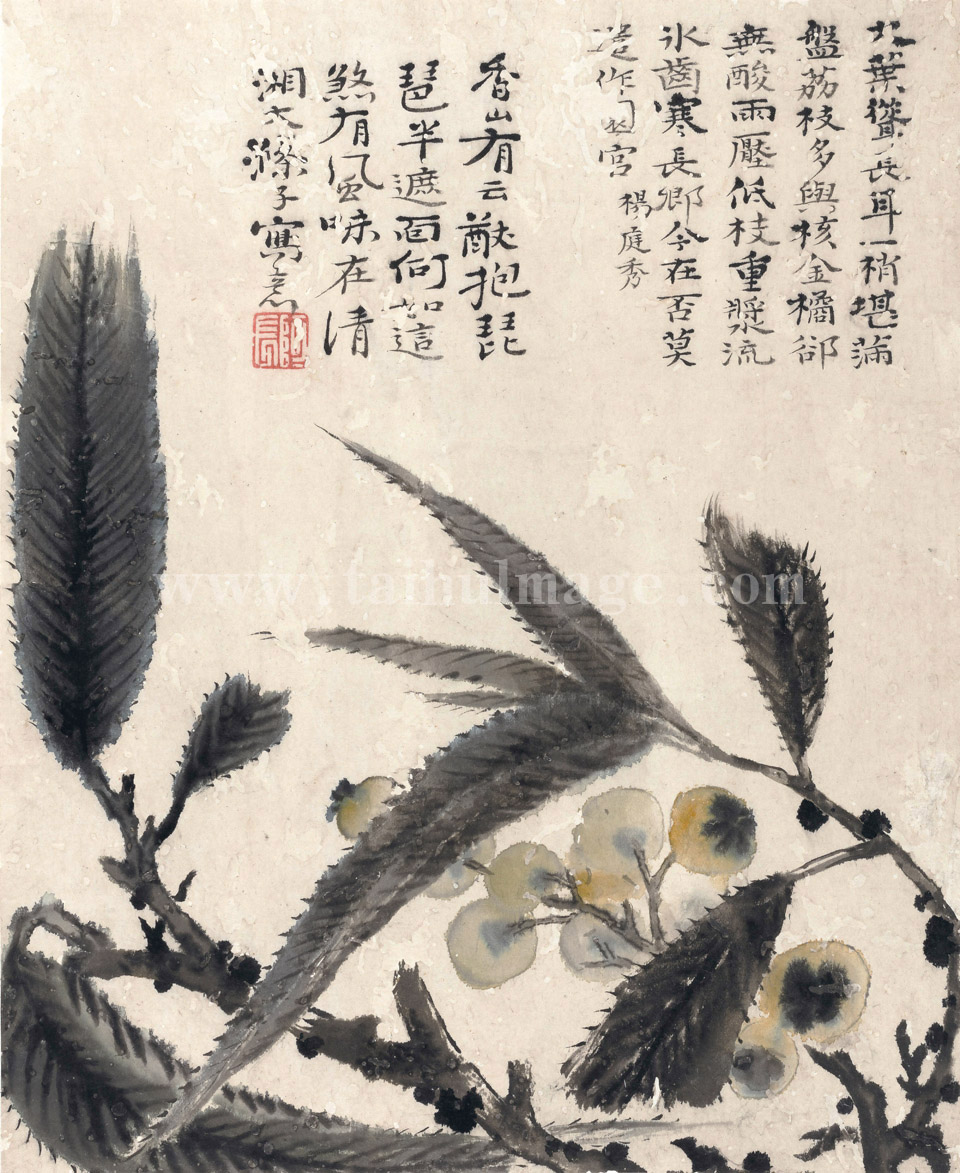 大葉聳長耳一梢堪滿
盤荔枝多與核金橘卻
無酸雨壓低枝重漿流
冰齒寒長卿今在否莫
遣作園官
楊庭秀
香山有云猷抱琵
琶半遮面何如這
煞有風味在清
湘大滌子寫意
www.ytaihuImage.com